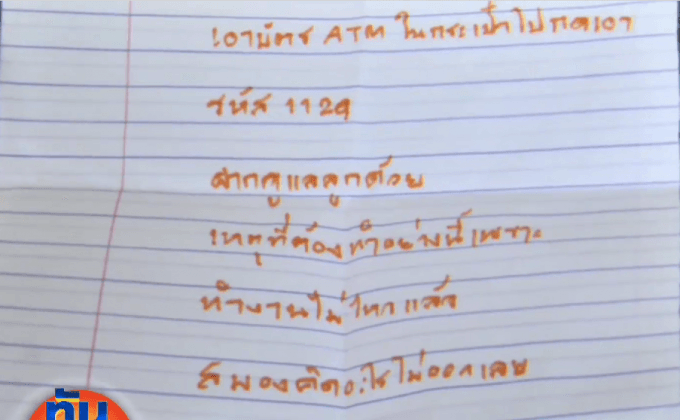 เอาบัตร ATM ในกระเป๋าไปกดเอา
รหัส 1129
ฝากดูแลลูกด้วย
เหตุที่ต้องทำอย่างนี้เพราะ
ทำงานไม่ไหวแล้ว
สมองคิดอะไรไม่ออกเลย
ทัน